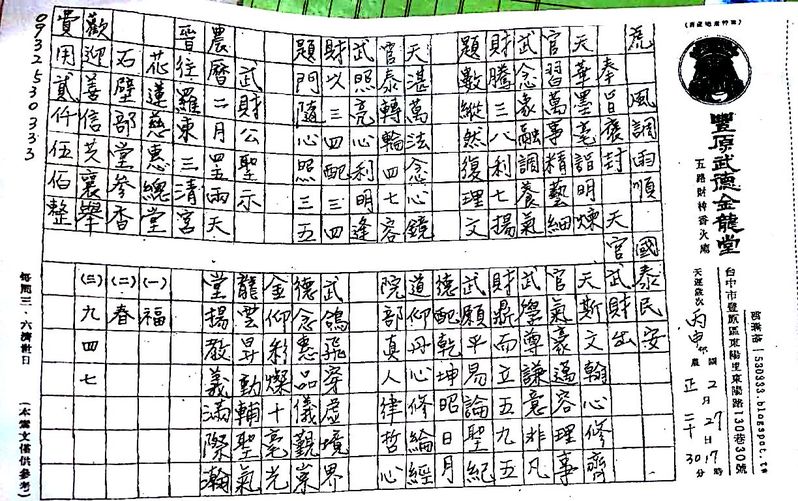 豐原武德金龍堂
五路財神香火處
台中市豐原區東陽里東陽路130巷30號
部落格 1530333.blogspot.tw
天運歲次 丙申年 國2月27日17時
農正二十 30分
虎 風調雨順 國泰民安
奉旨褒封 天官武財出
天華墨毫詣明煉
官習萬事精藝細
武念象融調養氣
財騰三八利七揚
題數縱然復理文
天湛萬法念心鏡
官泰轉輪四七容
武照亮心利明逢
財以三四配三四
題門隨心照三五
武財公聖示
農曆二月 雨天
晉往羅東三清宮
花蓮慈惠總堂
石壁部堂參香
歡迎善信共襄舉
費用貳仟伍佰整
0932530333
天斯文翰心修齊
官氣豪邁容理事
武鑾尊謙意非凡
財鼎而立五九五
武願平易論聖紀
德配乾坤昭日月
道仰丹心修綸經
院部真人律哲心
武鴿飛穿虛境界
德念惠品儀觀崇
金仰彩燦十毫光
龍雲昇動輔聖氣
堂揚教義滿際瀚
(一)福
(二)春
(三)九四七
每周三、六濟世日
(本鸞文僅供參考)